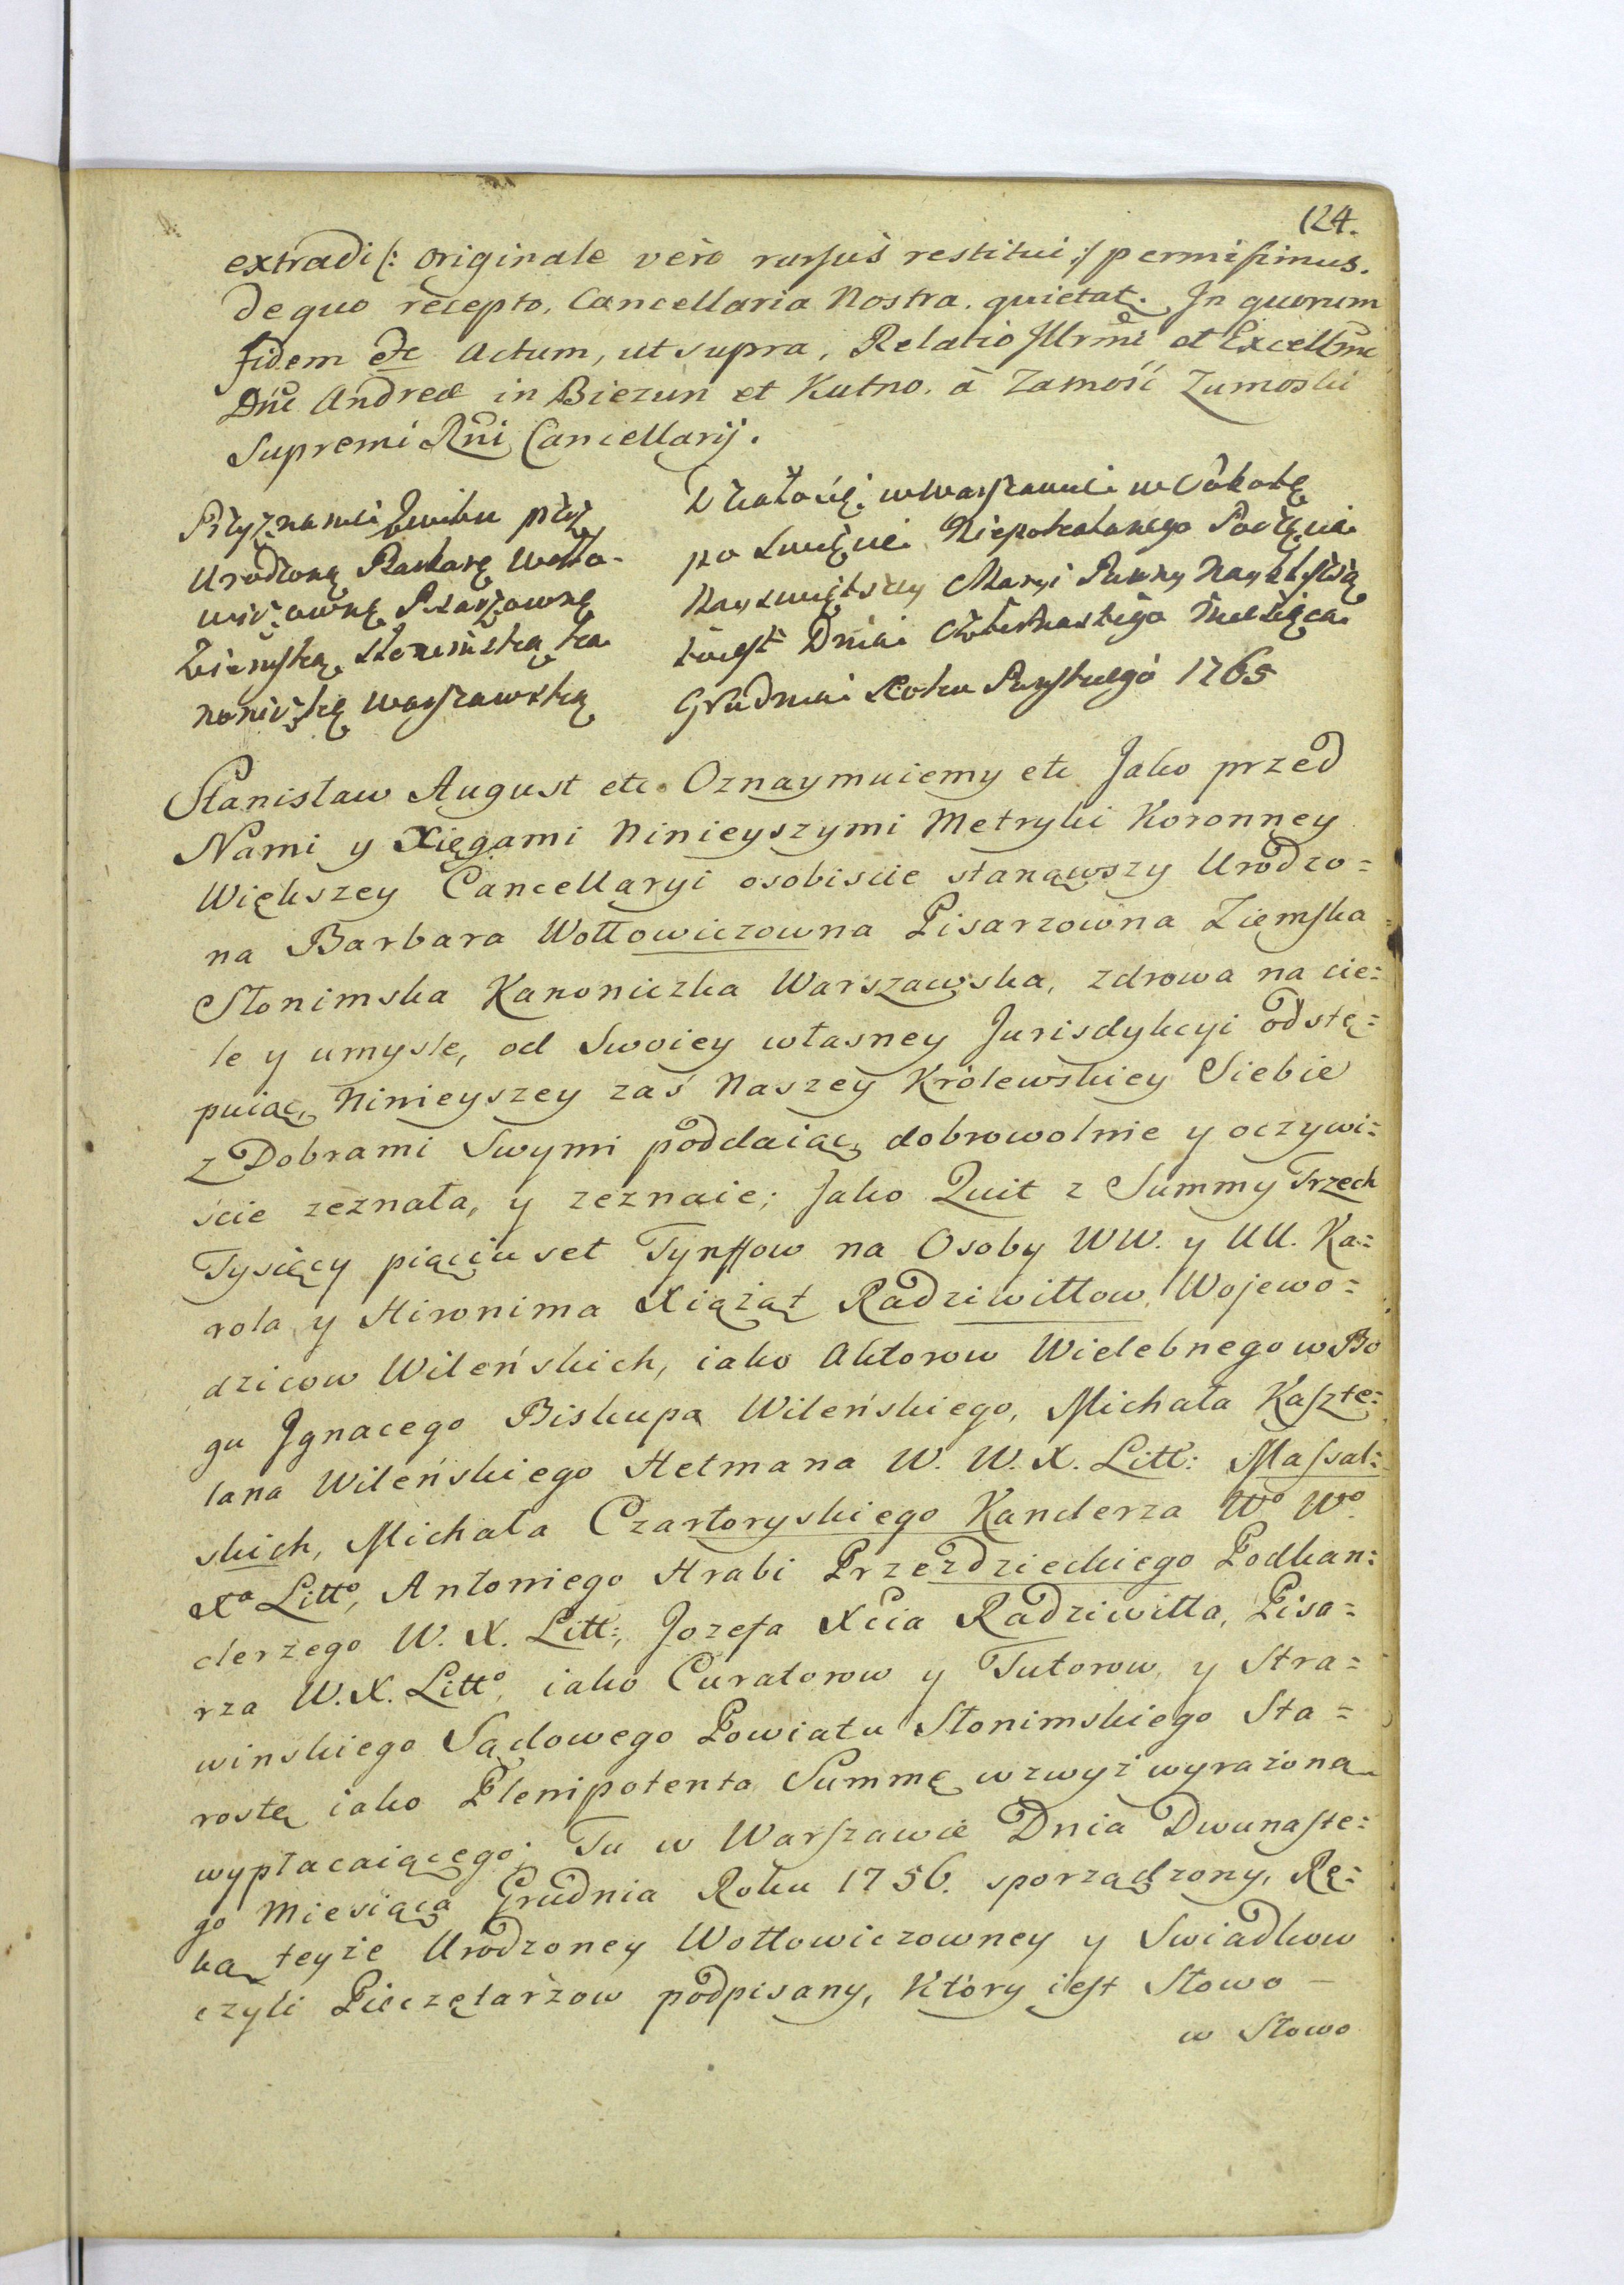 124.
extradi /: originale vero rursus restitui :/ permisimus.
de quo recepto, Cancellaria Nostra quietat. In quorum
fidem etc Actum, ut supra, Relatio Illrmi et Excellmi
Dni Andreæ in Biezun et Kutno. à Zamość Zamoski
Supremi Rni Cancellarij.
Przyznanie Kwitu przez
Urodzoną Barbarę Wołło-
wiczowne Pisarzowne
Ziemską Słonimską Ka
noniczkę Warszawską
Działo się w Warszawie w Sobotę
po Swięcie Niepokalanego Poczęcia
Nayswiętszey Maryi Panny Naybliższą
to iest Dnia Czternastego Miesiąca
Grudnia Roku Pańskiego 1765
Stanisław August etc. Oznaymuiemy etc Jako przed
Nami y Xięgami Ninieyszymi Metryki Koronney
Większey Cancellaryi osobiscie stanąwszy Urodzo=
na Barbara Wołłowiczowna Pisarzowna Ziemska
Słonimska Kanoniczka Warszawska, zdrowa na cie=
le y umysle, od Swoiey własney Jurisdykcyi odstę=
puiąc, Ninieyszey zaś Naszey Królewskiey Siebie
z Dobrami Swymi poddaiąc, dobrowolnie y oczywi=
ście zeznała, y zeznaie; Jako Quit z Summy Trzech
Tysięcy pięciu set Tynffow na Osoby WW. y UU. Ka=
rola y Hironima Xiążąt Radziwiłłow Wojewo=
dzicow Wileńskich, iako Aktorow Wielebnego w Bo
gu Ignacego Biskupa Wileńskiego, Michała Kaszte=
lana Wileńskiego Hetmana W. W. X. Litt: Massal=
skich, Michała Czartoryskiego Kanclerza Wo Wo
Xa Litto, Antoniego Hrabi Przezdzieckiego Podkan=
clerzego W. X. Litt:, Jozefa Xcia Radziwiłła, Pisa=
rza W. X. Litto, iako Curatorow y Tutorow, y Stra=
winskiego Sądowego Powiatu Słonimskiego Sta=
rostę iako Plenipotenta Summę wzwyż wyrażoną
wypłacaiącego; Tu w Warszawie Dnia Dwunaste=
go Miesiąca Grudnia Roku 1756. sporządzony, Rę=
ką teyże Urodzoney Wołłowiczowney y Swiadkow
czyli Pieczętarzow podpisany, Który iest Słowo –
w Słowo